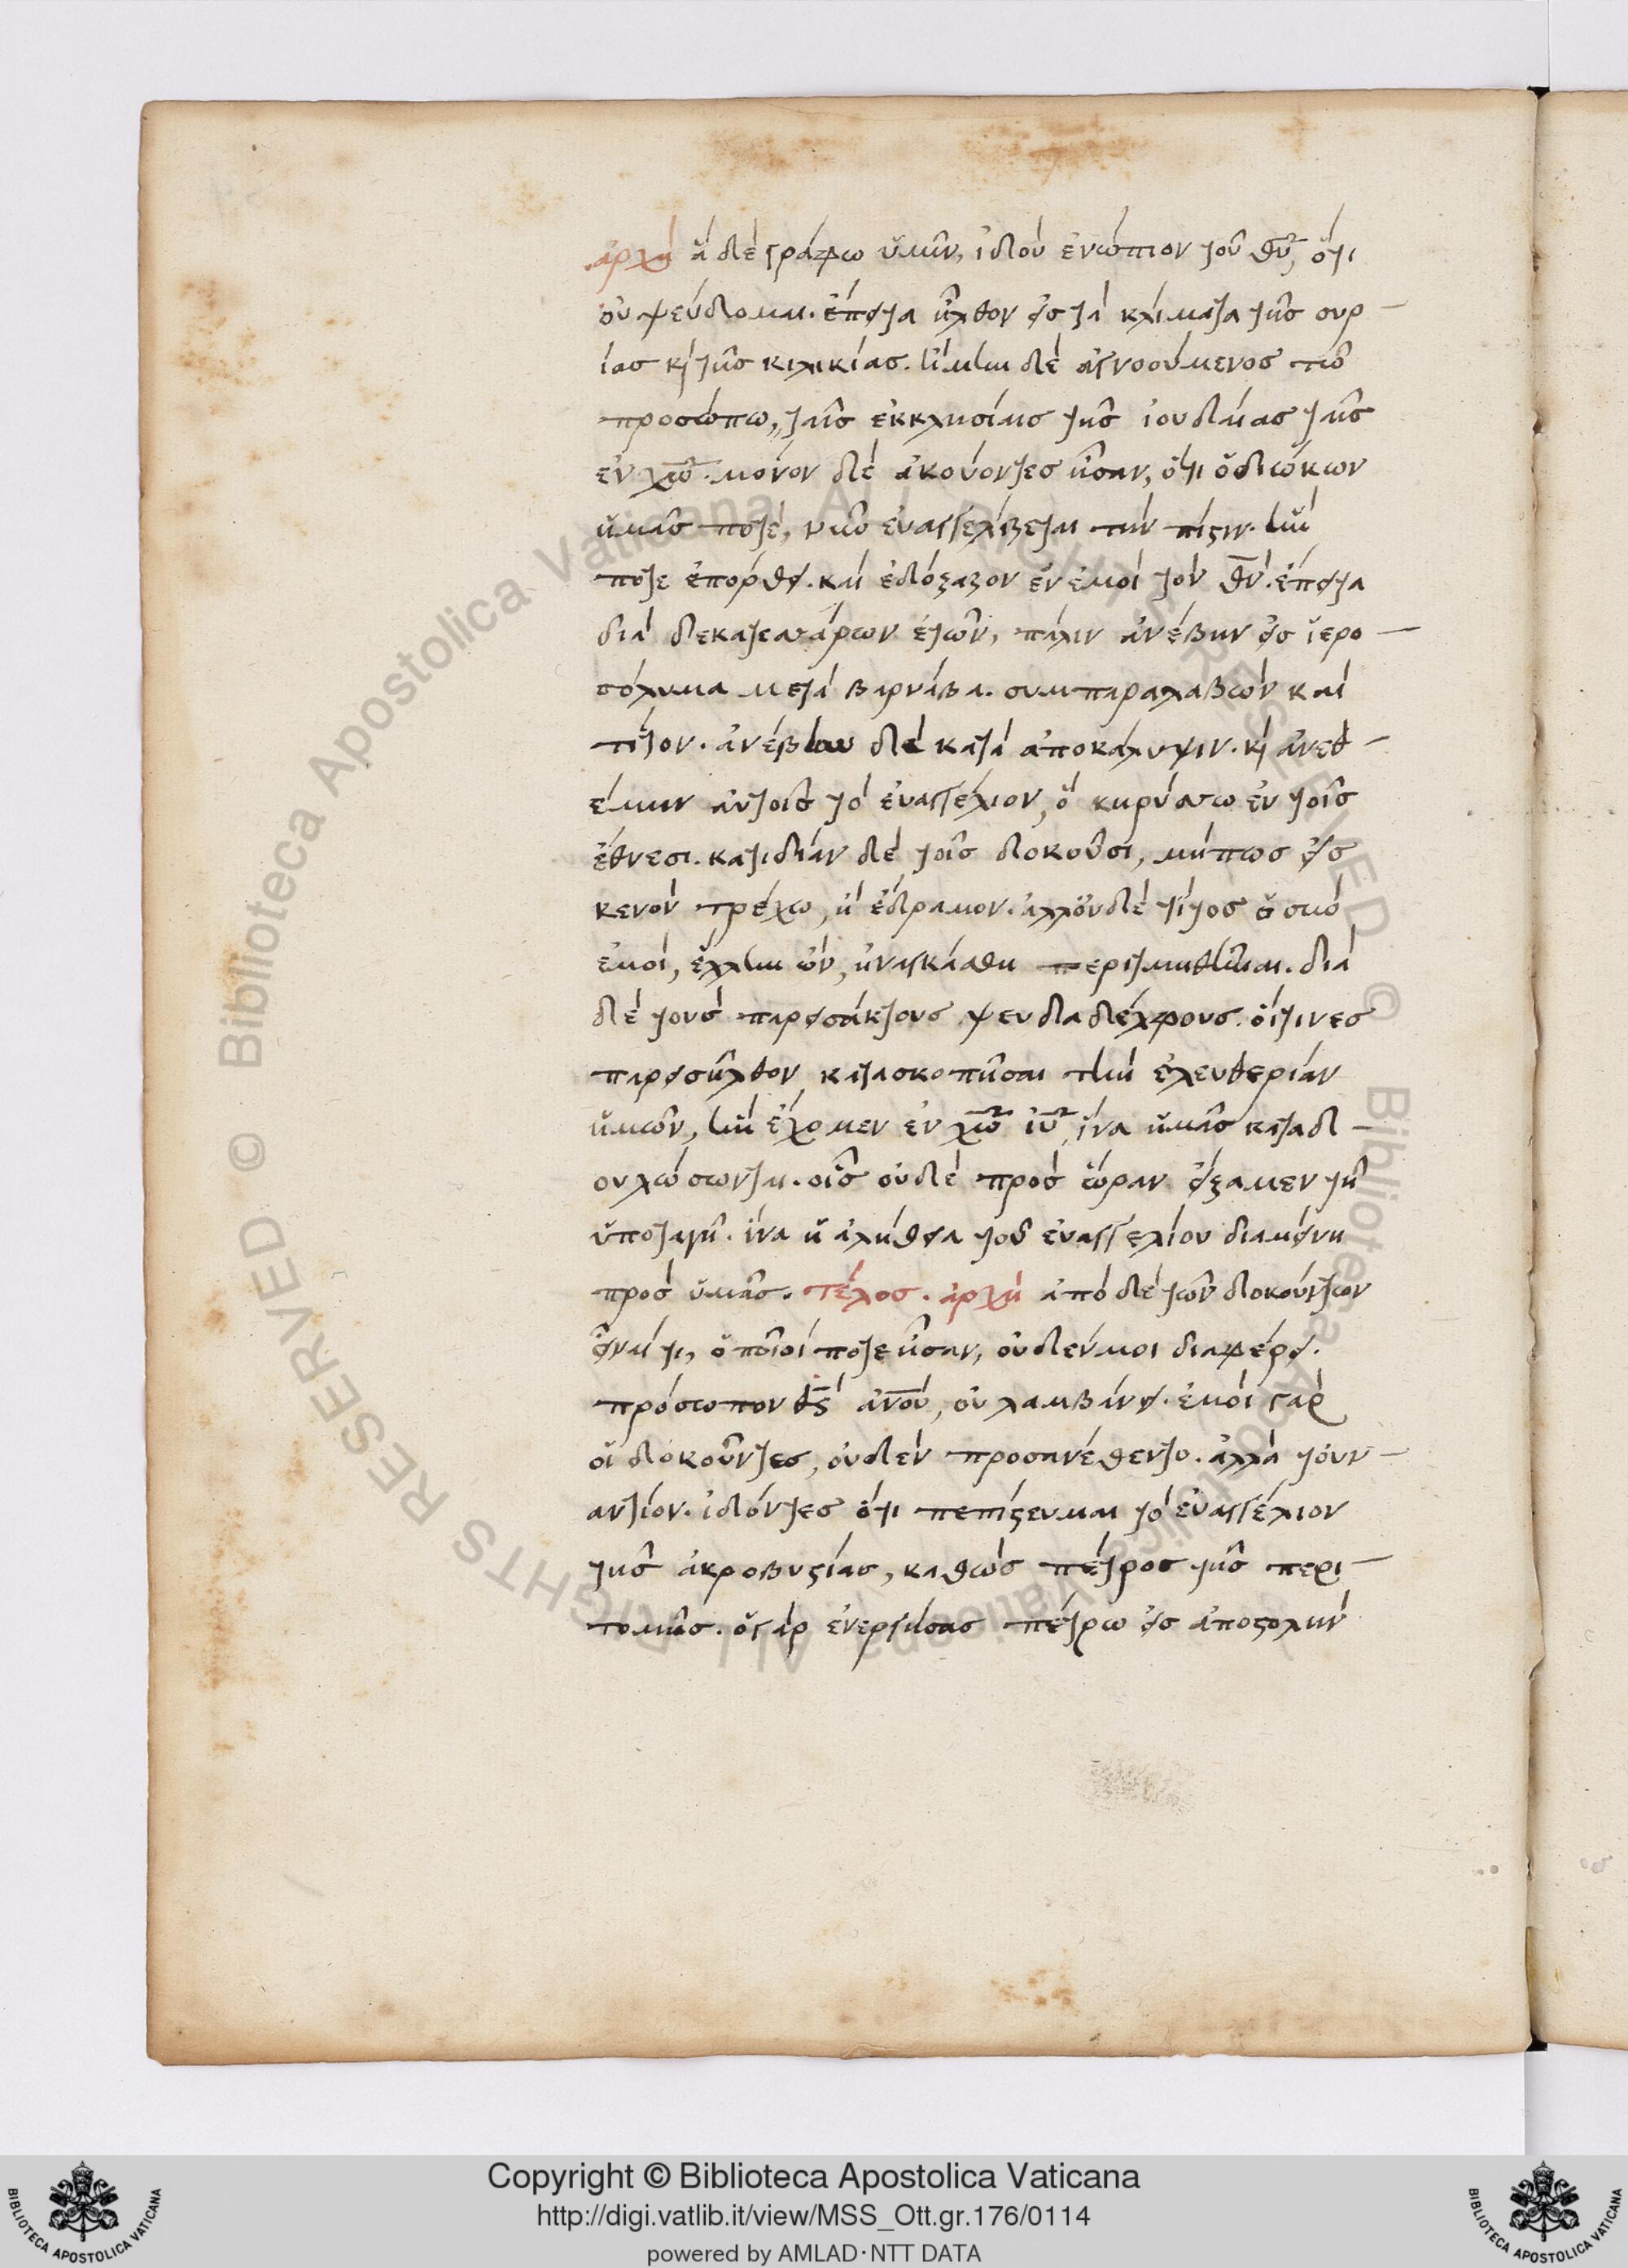 ἀρχὴ ἃ δὲ γράφω ὑμῖν, ἰδοὺ ἐνώπιον τοῦ θυ, ὅτι
οὐ ψεύδομαι. ἔπειτα ἦλθον εἰς τὰ κλίματα τῆς συρ-
ίας κ τῆς κιλικίας. ἤμην δὲ ἀγνοούμενος τῶ
προσώπω, ταῖς ἐκκλησίαις τῆς ἰουδαίας ταῖς
ἐν χω. μόνον δὲ ἀκούοντες ἦσαν, ὅτι ὁ διώκων
ἡμᾶς ποτὲ, νῦν εὐαγγελίζεται τὴν πίστιν. ἣν
ποτε ἐπόρθει. καὶ ἐδόξαζον ἐν ἐμοὶ τὸν θν. ἔπειτα
διὰ δεκατεσσάρων ἐτῶν, πάλιν ἀνέβην εἰς ἱερο-
σόλυμα μετὰ βαρνάβα. συμπαραλαβὼν καὶ
τίτον. ἀνέβην δὲ κατὰ ἀποκάλυψιν. κ ἀνεθ-
έμην αὐτοῖς τὸ εὐαγγέλιον, ὃ κηρύσσω ἐν τοῖς
ἔθνεσι. κατιδίαν δὲ τοῖς δοκοῦσι, μήπως εἰς
κενὸν τρέχω, ἢ ἔδραμον. ἀλλοὐδὲ τίτος ὁ σὺν
ἐμοὶ, ἕλλην ὢν, ἠναγκάσθη περιτμηθῆναι. διὰ
δὲ τοὺς παρεισάκτους ψευδαδέλφους. οἵτινες
παρεισῆλθον κατασκοπῆσαι τὴν ἐλευθερίαν
ἡμῶν, ἣν ἔχομεν ἐν χω ιυ, ἵνα ἡμᾶς καταδ-
ουλώσωνται. οἷς οὐδὲ πρὸς ὥραν εἴξαμεν τῆ
ὑποταγῆ. ἵνα ἡ ἀλήθεια τοῦ εὐαγγελίου διαμείνη
πρὸς ὑμᾶς. τέλος. ἀρχὴ ἀπὸ δὲ τῶν δοκούντων
εἶναί τι, ὁποῖοί ποτε ἦσαν, οὐδέν μοι διαφέρει.
πρόσωπον θς ανου, οὐ λαμβάνει. ἐμοὶ γὰρ
οἱ δοκοῦντες, οὐδὲν προσανέθεντο. ἀλλὰ τοὐν-
αντίον. ἰδόντες ὅτι πεπίστευμαι τὸ εὐαγγέλιον
τῆς ἀκροβυστίας, καθὼς πέτρος τῆς περι-
τομῆς. ὁ γὰρ ἐνεργήσας πέτρω εἰς ἀποστολὴν
© Biblioteca Apostolica Vaticana ALL RIGHTS RESERVED
Copyright © Biblioteca Apostolica Vaticana
http://digi.vatlib.it/view/MSS_Ott.gr.176/0114
powered by AMLAD·NTT DATA
BIBLIOTECA APOSTOLICA VATICANA
BIBLIOTECA APOSTOLICA VATICANA